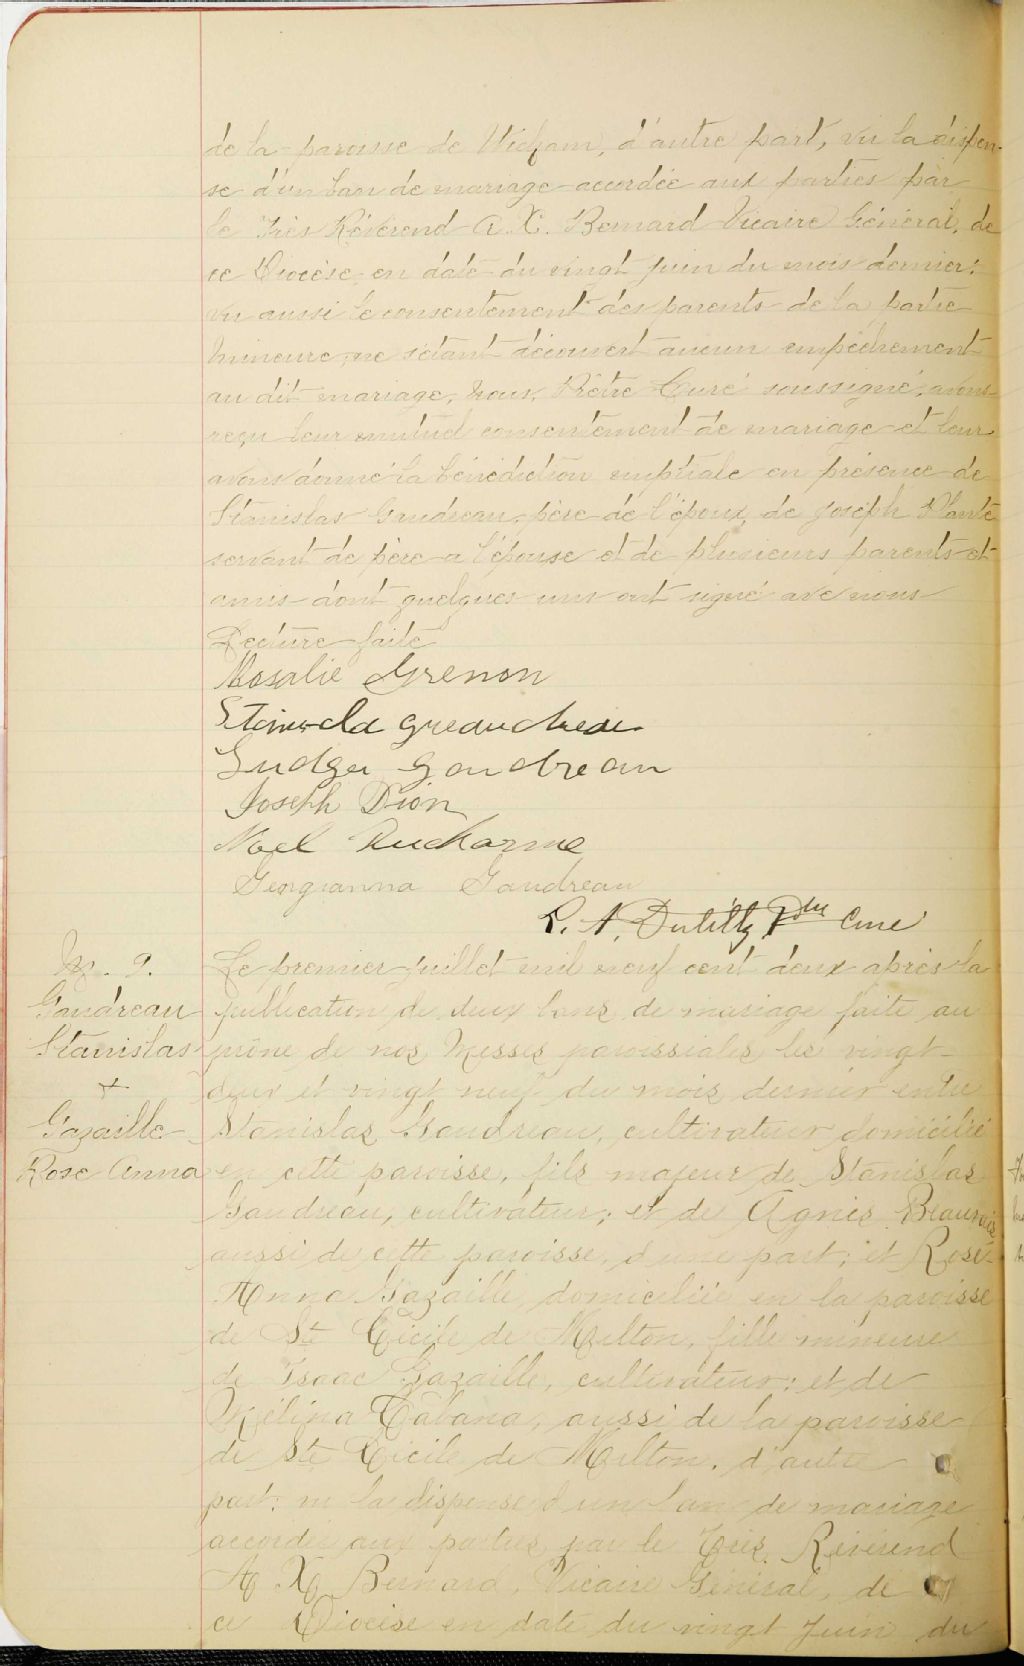 de la paroisse de Wickam, d'autre part, vu la dispen-
se d'un ban de mariage accordée aux parties par
le Très Révérend A. X. Bernard Vicaire Général, de
ce Diocèse en date du vingt juin du mois dernier;
vu aussi le consentement des parents de la partie
mineure, ne s'étant découvert aucun empêchement
au dit mariage, nous, Prêtre Curé soussigné, avons
reçu leur mutuel consentement de mariage et leur
avons donné la bénédiction nuptiale en présence de
Stanislas Gaudreau, père de l'époux, de Joseph Planté
servant de père a l'épouse et de plusieurs parents et
amis dont quelques uns ont signé avec nous
Lecture faite
Rosalie Grenon
Gaudreau
Joseph Dion
Noel Ducharme
Georgianna Gaudreau
L. A. Ptre Curé
M. 9.
Gaudreau
Stanislas
+
Gazaille
Rose Anna
Le premier juillet mil neuf cent deux après la
publication de deux bans de mariage faite au
prône de nos Messes paroissiales les vingt-
deux et vingt neuf du mois dernier entre
Stanislas Gaudreau, cultivateur domicilié
en cette paroisse, fils majeur de Stanislas
Gaudreau, cultivateur; et de Agnis Beauvais
aussi de cette paroisse, d'une part; et Rose-
Anna Gazaille domiciliée en la paroisse
de Ste Cécile de Milton, fille mineure
de Isaac Gazaille, cultivateur; et de
Mélina Cabana, aussi de la paroisse
de Ste Cécile de Milton, d'autre
part; vu la dispense d'un ban de mariage
accordée aux parties par le Très Révérend
A X Bernard, Vicaire Général, de
ce Diocèse en date du vingt Juin du